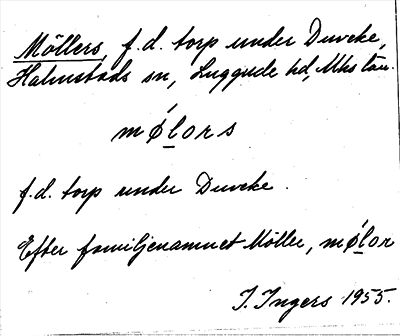 Möllers, f.d. torp under Duveke,
Halmstads sn, Luggude hd, Mhs län.
mǿlors
f.d. torp under Duveke.
Efter familjenamnet Möller, mǿlor
I. Ingers 1955.